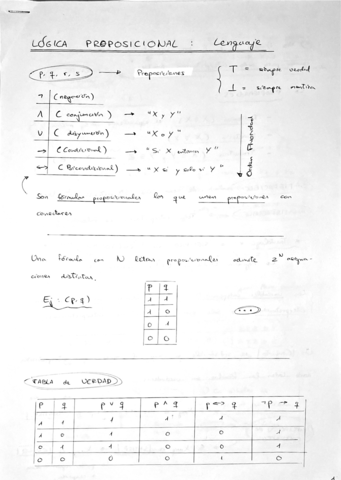 LÓGICA PROPOSICIONAL : Lenguaje
p, q, r, s → Proposiciones
T = siempre verdad
⊥ = siempre mentira
¬ (negación)
∧ (conjunción) → "X y Y"
∨ (disyunción) → "X o Y"
→ (Condicional) → "Si X entonces Y"
↔ (Bicondicional) → "X si y sólo si Y"
Orden Prioridad
Son fórmulas proposicionales las que unen proposiciones con
conectores
Una fórmula con N letras proposicionales admite 2^N asigna-
ciones distintas.
Ej : (p, q)
p q
1 1
1 0
0 1
0 0
TABLA de VERDAD
p q p ∨ q p ∧ q p ↔ q ¬p → q
1 1 1 1 1 1
1 0 1 0 0 1
0 1 1 0 0 1
0 0 0 0 1 0